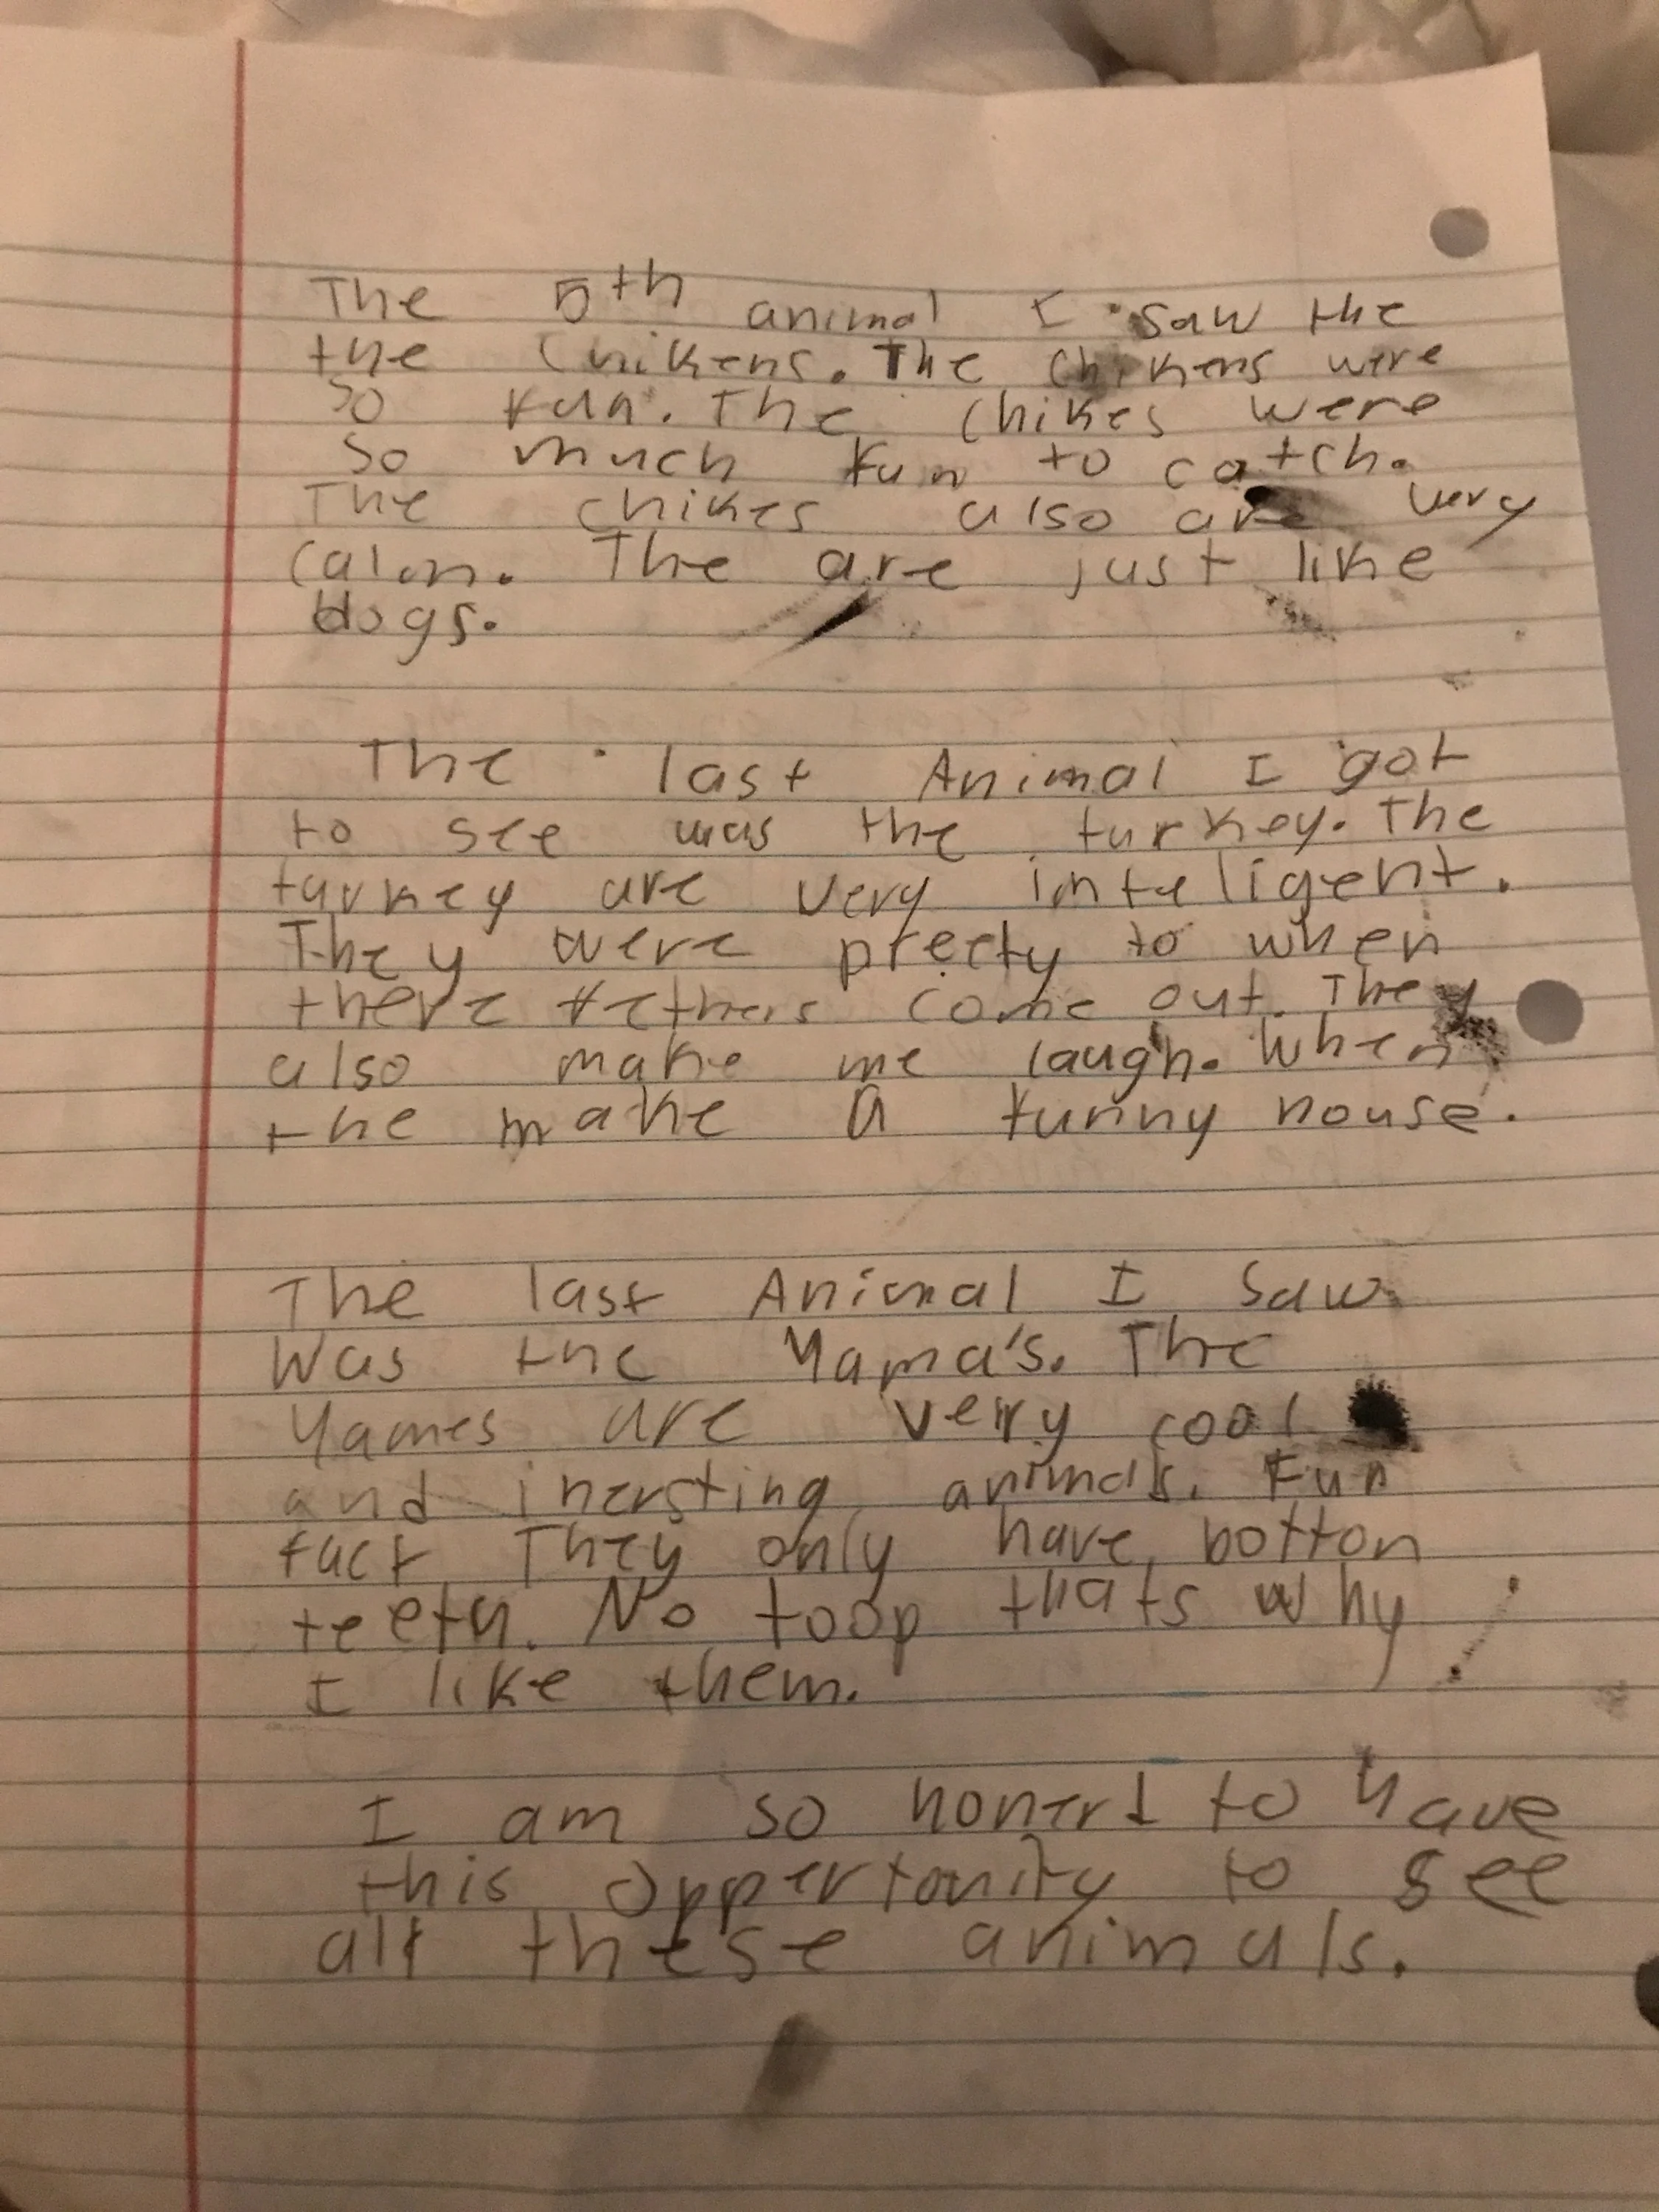 The 5th animal I saw the
the Chikens. The Chikens were
so fun. The chikes were
so much fun to catch.
The chikes also are very
calm. The are just like
dogs.
The last Animal I got
to see was the turkey. The
turkey are very inteligent.
They were preety to when
there fethers come out. They
also make me laugh. When
the make a funny nouse.
The last Animal I saw
Was the Yama's. The
Yames are very cool
and inersting animals. Fun
fact They only have botton
teeth. No toop thats why
I like them.
I am so honerd to have
this oppertonity to see
all these animals.